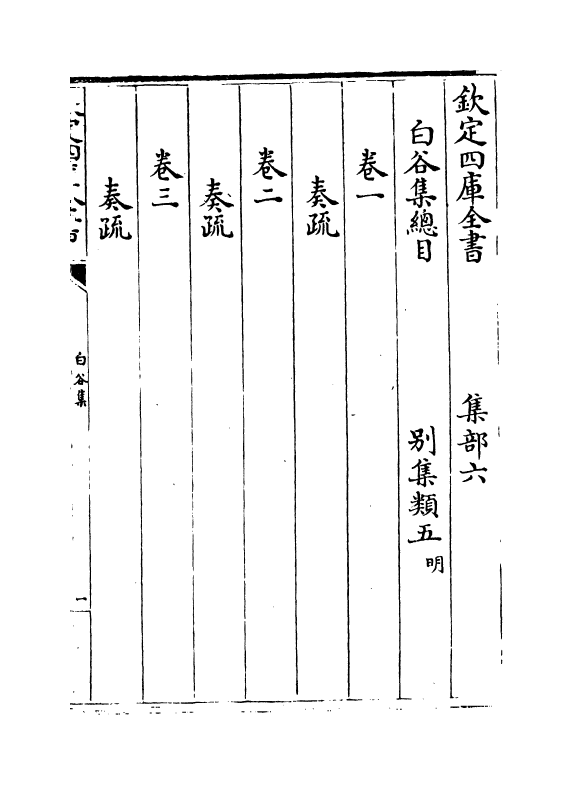 欽定四庫全書　集部六
白谷集總目　别集類五明
卷一
奏疏
卷二
奏疏
卷三
奏疏
欽定四庫全書
白谷集
一